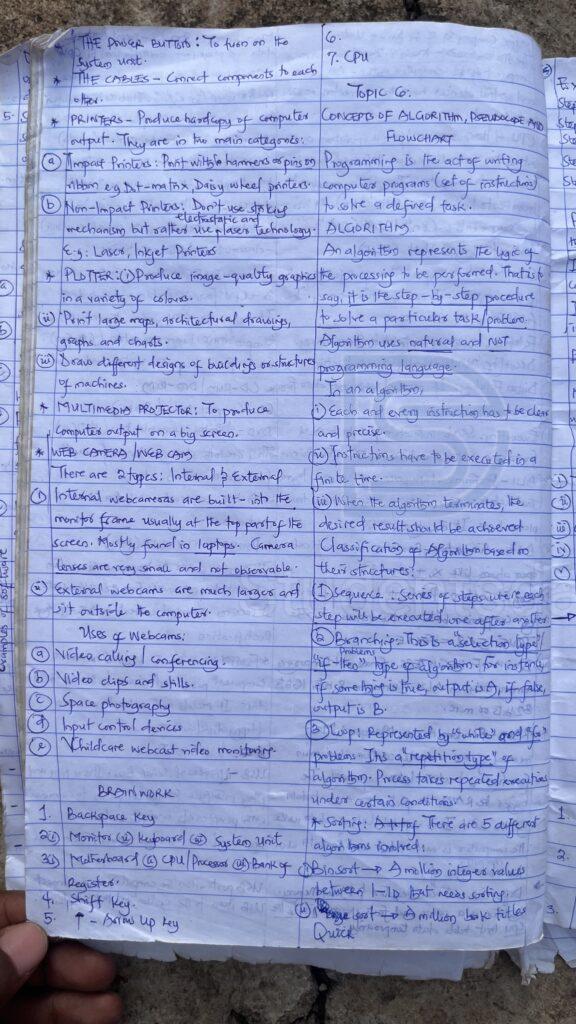 THE POWER BUTTON: To turn on the
System unit.
* THE CABLES - Connect components to each
other.
* PRINTERS - Produce hardcopy of computer
output. They are in two main categories:
(a) Impact Printers: Print with hammers or pins on
ribbon e.g Dot-matrix, Daisy wheel printers.
(b) Non-Impact Printers: Don't use striking
electrostatic and
mechanism but rather use laser technology.
E.g: Laser, Inkjet Printers
* PLOTTER: (i) Produce image-quality graphics
in a variety of colours.
(ii) Print large maps, architectural drawings,
graphs and charts.
(iii) Draw different designs of buildings or structures
of machines.
* MULTIMEDIA PROJECTOR: To produce
Computer output on a big screen.
* WEB CAMERA/WEB CAM
There are 2 types: Internal & External
(i) Internal webcameras are built-into the
monitor frame usually at the top part of the
screen. Mostly found in laptops. Camera
lenses are very small and not observable.
(ii) External webcams are much larger and
sit outside the computer.
Uses of Webcams:
(a) Video calling/conferencing.
(b) Video clips and stills.
(c) Space photography
(d) Input control devices
(e) Childcare webcast video monitoring.
BRAINWORK
1. Backspace Key
2. (i) Monitor (ii) Keyboard (iii) System Unit
3. (i) Motherboard (ii) CPU/Processor (iii) Bank of
Register.
4. Shift Key.
5. ↑ - Arrow Up Key
6.
7. CPU
TOPIC 6:
CONCEPTS OF ALGORITHM, PSEUDOCODE AND
FLOWCHART
Programming is the act of writing
computer programs (set of instructions)
to solve a defined task.
ALGORITHM
An algorithm represents the logic of
the processing to be performed. That is to
say, it is the step-by-step procedure
to solve a particular task/problem.
Algorithm uses natural and NOT
programming language.
In an algorithm,
(i) Each and every instruction has to be clear
and precise.
(ii) Instructions have to be executed in a
finite time.
(iii) When the algorithm terminates, the
desired result should be achieved
Classification of Algorithm based on
their structures:
(1) Sequence: Series of steps where each
step will be executed one after another
(2) Branching: This is a "selection type"
problems
"if-then" type of algorithm. for instance,
if something is true, output is A, if false,
output is B.
(3) Loop: Represented by "while" and "for"
problems. It is a "repetition type" of
algorithm. Process takes repeated executions
under certain conditions
* Sorting: There are 5 different
algorithms involved:
(i) Bin sort → A million integer values
between 1-10 that needs sorting.
(ii) Merge sort → A million book titles
Quick
Examples of Software